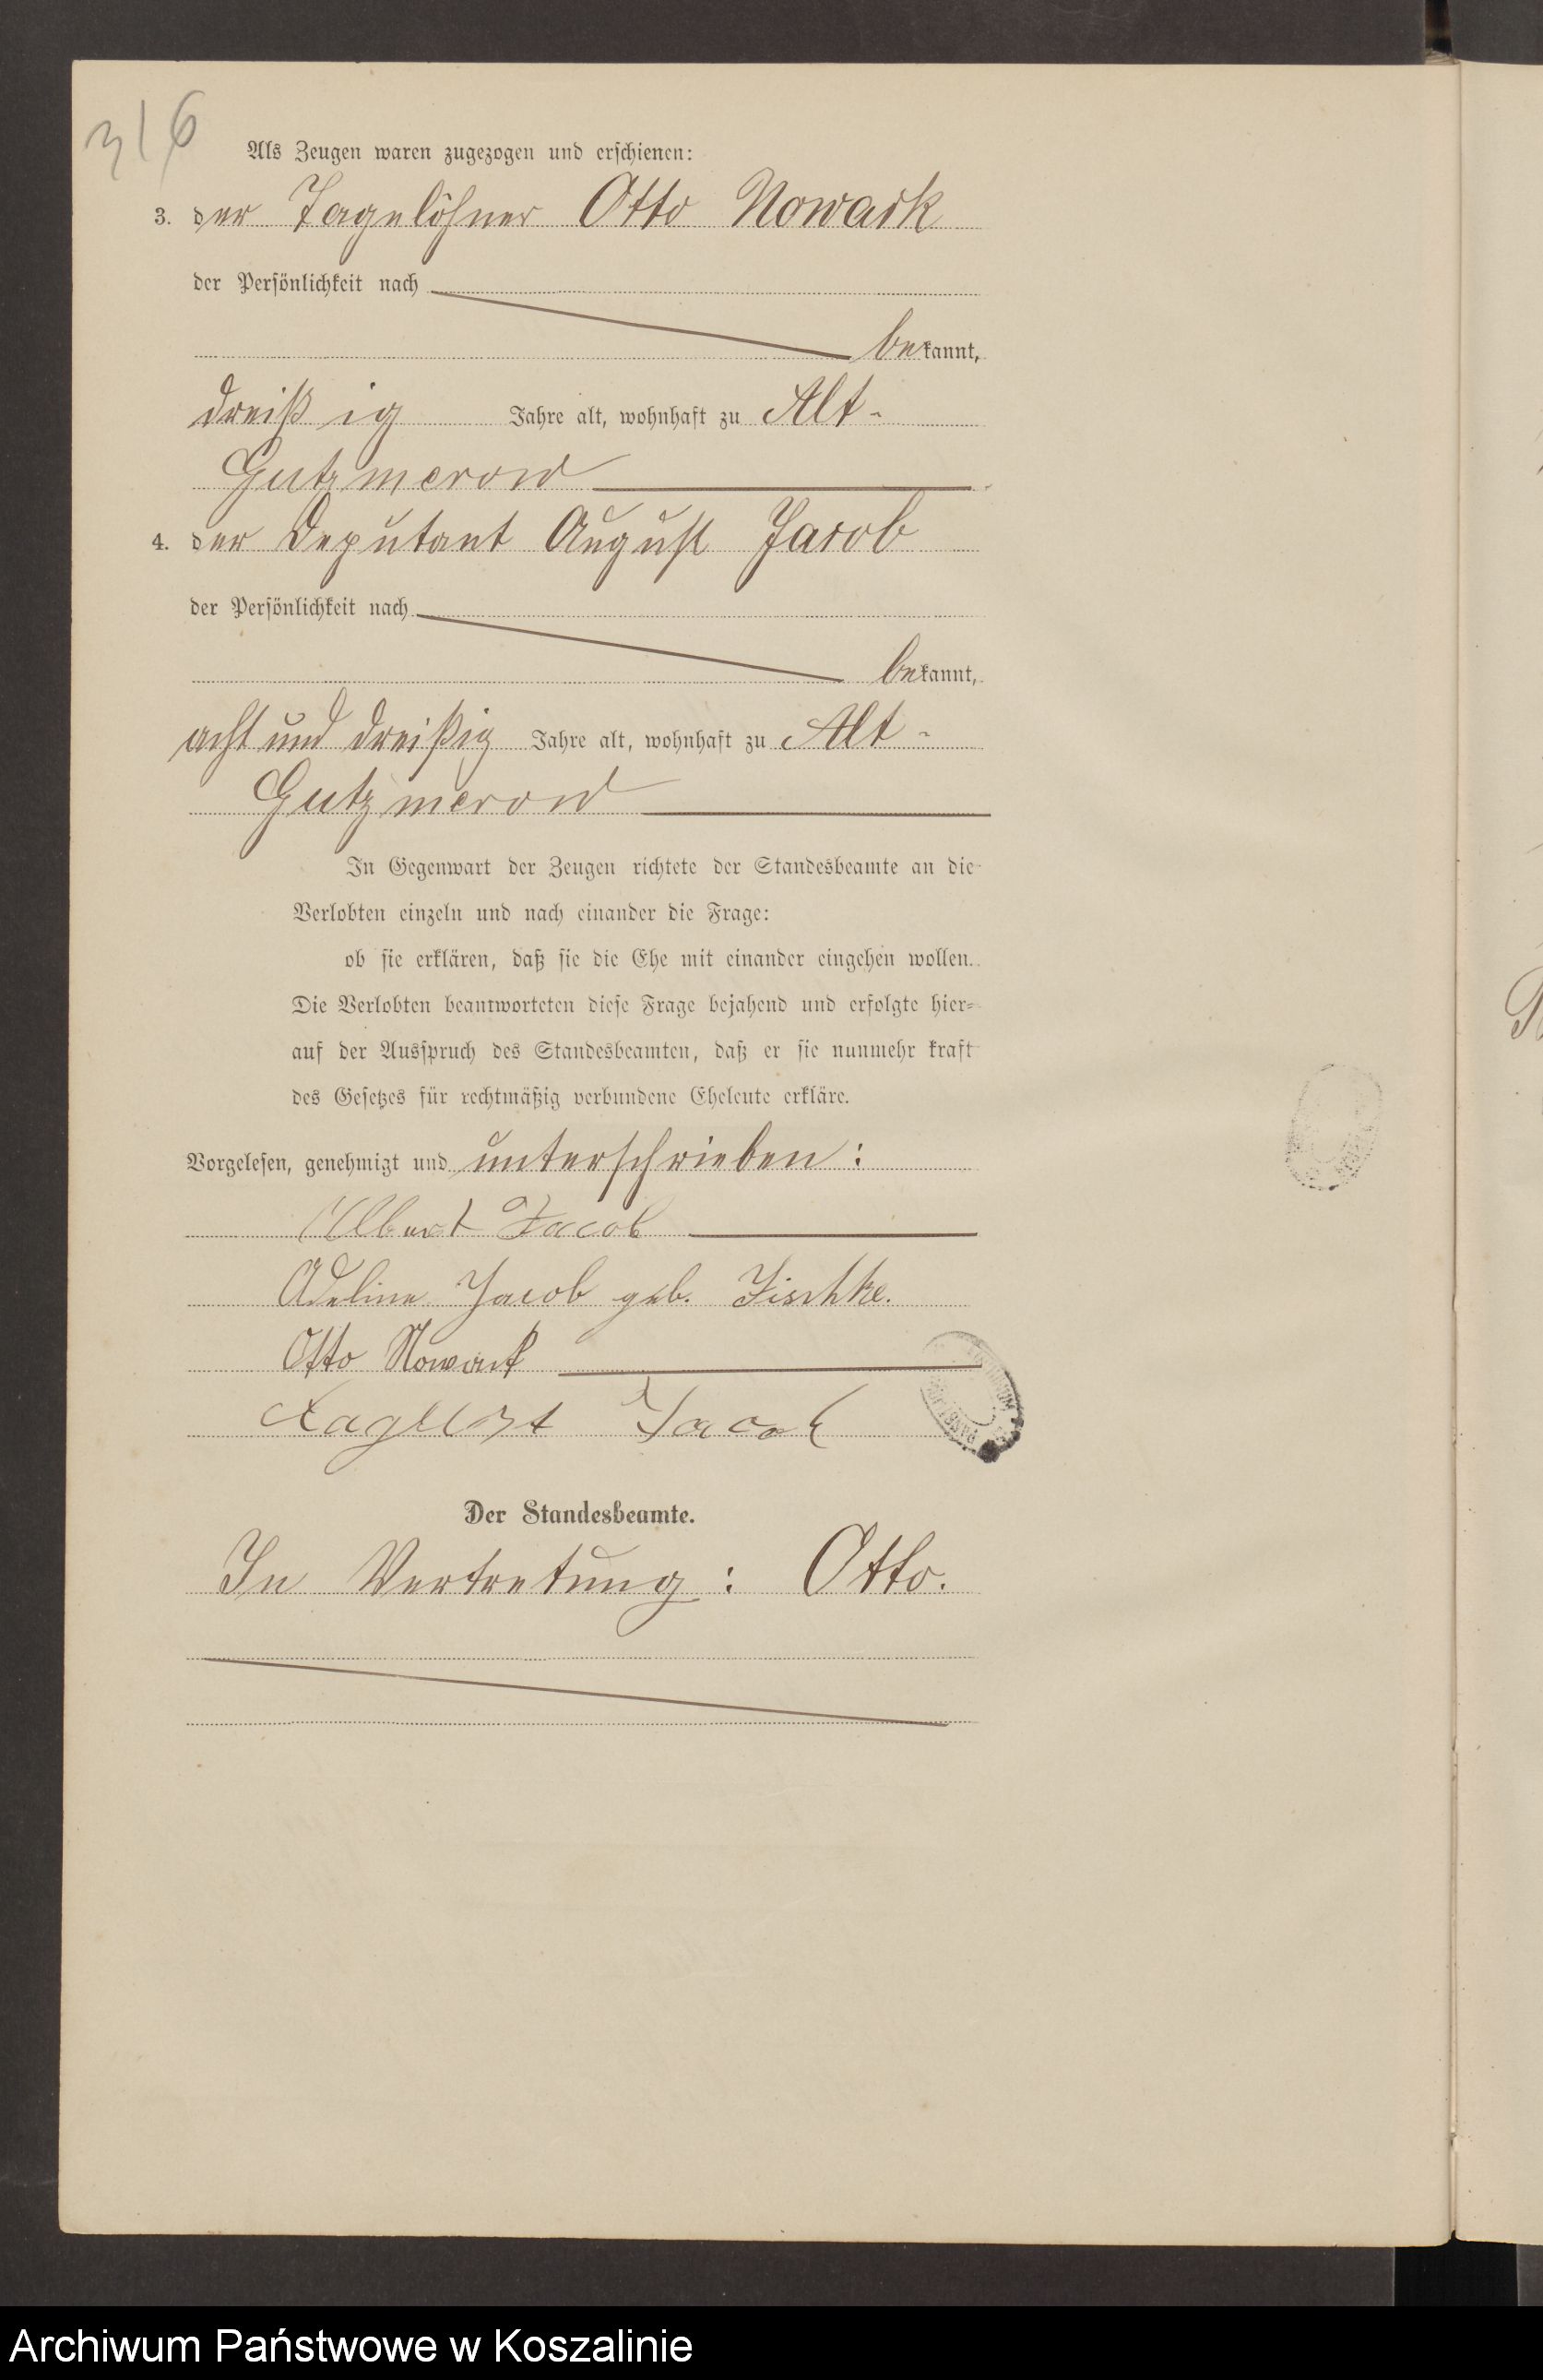 316
Als Zeugen waren zugezogen und erschienen:
3. der Tagelöhner Otto Nowack
der Persönlichkeit nach
bekannt,
dreißig Jahre alt, wohnhaft zu Alt-
Gutzmerow
4. der Deputant August Jacob
der Persönlichkeit nach
bekannt,
acht und dreißig Jahre alt, wohnhaft zu Alt-
Gutzmerow
In Gegenwart der Zeugen richtete der Standesbeamte an die
Verlobten einzeln und nach einander die Frage:
ob sie erklären, daß sie die Ehe mit einander eingehen wollen.
Die Verlobten beantworteten diese Frage bejahend und erfolgte hier=
auf der Ausspruch des Standesbeamten, daß er sie nunmehr kraft
des Gesetzes für rechtmäßig verbundene Eheleute erkläre.
Vorgelesen, genehmigt und unterschrieben:
Albert Jacob
Adeline Jacob geb.
Otto Nowack
Jacob
Der Standesbeamte.
In Vertretung: Otto.
Archiwum Państwowe w Koszalinie